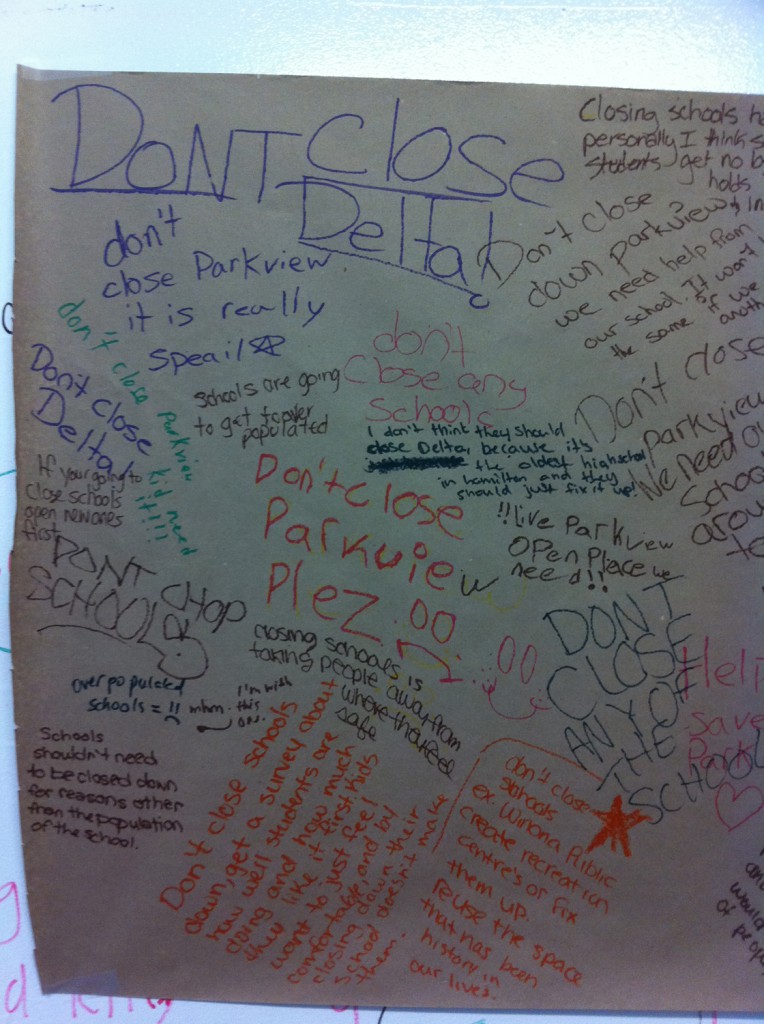 DONT Close
Delta!
Closing schools
personally I think
students get no
holds
don't
close Parkview
it is really
speail
Don't close
down parkview
we need help from
our school. It won't
the same if we
don't close Parkview
kid need
it!!!
Don't close
Delta!
schools are going
to get topver
populated
don't
Close any
Schools
Don't close
Parkview
We need
School
I don't think they should
close Delta, because it's
the oldest highschool
in hamilton and they
should just fix it up!
If your going to
close schools
open new ones
first
Don't close
Parkview
Plez.
!!live Parkview
open place we
need!!
DONT CHOP
SCHOOL
closing schools is
taking people away from
where that feel
safe
DONT
CLOSE
ANY OF
THE
SCHOOL
Help
save
Park
over populated
schools = !! mhm.
I'm with
this
on.
Schools
shouldn't need
to be closed down
for reasons other
than the population
of the school.
Don't close schools
down, get a survey about
how well students are
doing and how much
they like it first. Kids
want to just feel
comfortable, and by
closing down their
school doesn't make
them.
don't close
schools
ex. Winona Public
create recreation
centre's or fix
them up.
Reuse the space
that has been
history in
our lives.
would
of